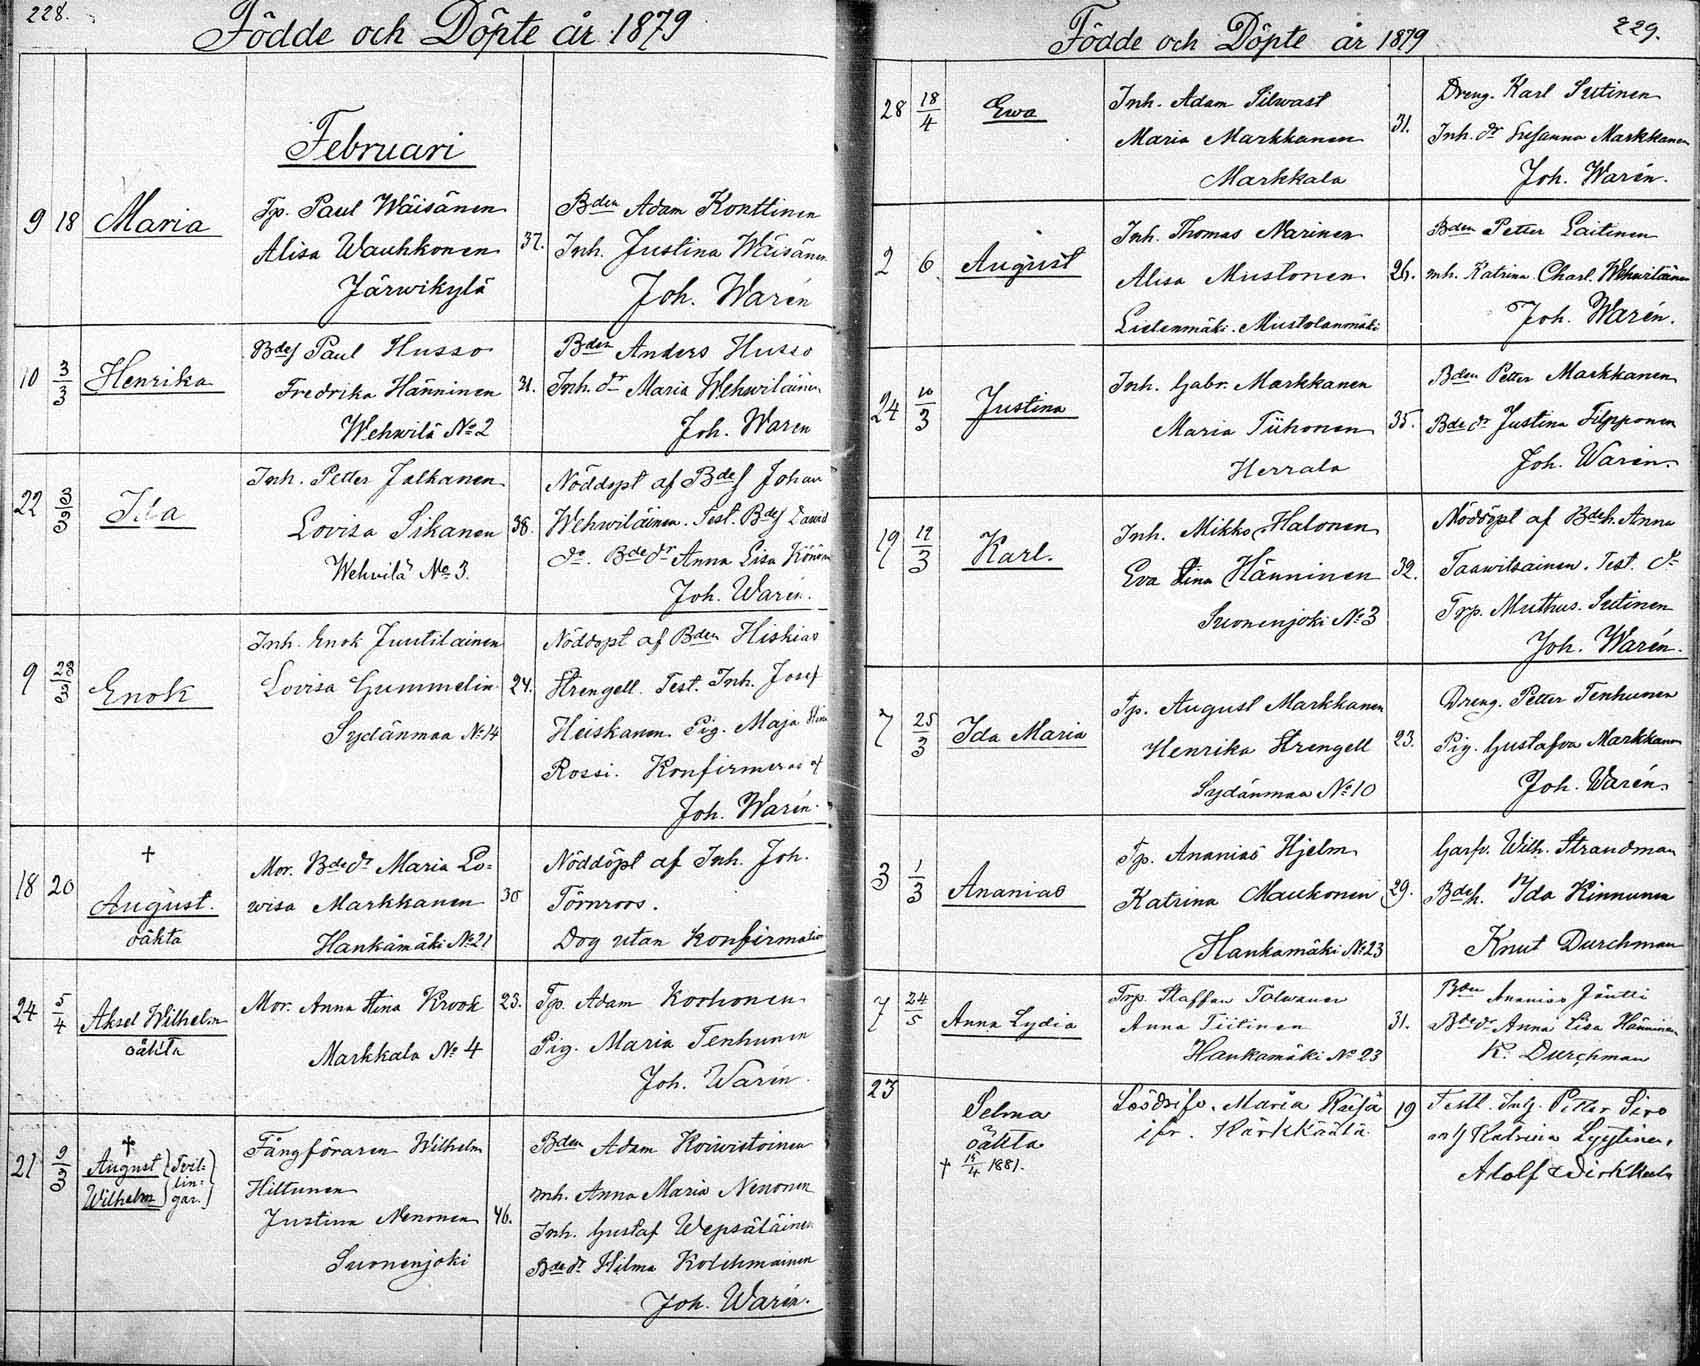 228.
Födde och Döpte år 1879
Februari
9 18 Maria
Tp. Paul Wäisänen
Alisa Wauhkonen 37.
Järwikylä
Bden Adam Konttinen
Inh. Justina Wäisänen
Joh. Warén
10 3/3 Henrika
Bdes Paul Husso
Fredrika Hänninen 31.
Wehwilä No 2
Bden Anders Husso
Inh. dr Maria Wehwiläinen
Joh. Waren
22 3/3 Ida
Inh. Petter Jalkanen
Lovisa Sikanen 38.
Wehvilä No 3.
Nöddöpt af Bdes Johan
Wehwiläinen. Test. Bdes David
do. Bde dr Anna Lisa Könönen
Joh. Warén.
9 23/3 Enok
Inh. Enok Juutilainen
Lovisa Gummelin 24.
Sydänmaa No 14
Nöddöpt af Bden Hiskias
Strengell. Test. Inh. Josef
Heiskanen Pig. Maja Stina
Rossi. Konfirmeras af
Joh. Warén.
18 20 † August.
oäkta
Mor. Bde dr Maria Lo-
wisa Markkanen 30
Hankamäki No 21
Nöddöpt af Inh. Joh.
Törnroos.
Dog utan konfirmation
24 5/4 Aksel Wilhelm
oäkta
Mor. Anna Stina Krook 23.
Markkala No 4
Tp. Adam Korhonen
Pig. Maria Tenhunen
Joh. Warén.
21 9/3 † August
Wilhelm } Tvil-
lin-
gar. }
Fångföraren Wilhelm
Hiltunen
Justina Nenonen 46.
Suonenjoki
Bden Adam Koivistoinen
mh. Anna Maria Nenonen
Inh. Gustaf Wepsäläinen
Bde dr Hilma Kolehmainen
Joh. Warén.
Födde och Döpte år 1879
229.
28 18/4 Ewa
Inh. Adam Silwast
Maria Markkanen 31.
Markkala
Dreng. Karl Sutinen
Inh. dr Susanna Markkanen
Joh. Warén.
2 6 August
Inh. Thomas Narinen
Alisa Mustonen 26.
Lielenmäki. Mustolanmäki
Bden Petter Laitinen
mh. Katrina Charl. Wehwiläinen
Joh. Warén.
24 10/3 Justina
Inh. Gabr. Markkanen
Maria Tiihonen 35.
Herrala
Bden Petter Markkanen
Bde dr Justina Filpponen
Joh. Warén.
19 12/3 Karl.
Inh. Mikko Halonen
Eva Stina Hänninen 32.
Suonenjoki No 3
Nöddöpt af Bdeh. Anna
Taawitsainen. Test. dr
Trp. Mathus. Sutinen
Joh. Warén.
7 25/3 Ida Maria
Tp. August Markkanen
Henrika Strengell 23.
Sydänmaa No 10
Dreng. Petter Tenhunen
Pig. Gustafva Markkanen
Joh. Warén.
3 1/3 Ananias
Tp. Ananias Hjelm
Katrina Maukonen 29.
Hankamäki No 23
Garfv. Wilh. Strandman
Bdeh. Ida Kinnunen
Knut Durchman
7 24/5 Anna Lydia
Trp. Staffan Tolwanen
Anna Tiitinen 31.
Hankamäki No 23
Bden Ananias Jäntti
Bde dr Anna Lisa Hänninen
K. Durchman
23 Selma
oäkta
† 15/4 1881.
Lösdrifv. Maria Räisä 19
ifr. Kärkkäälä
Testl. Inh. Petter Siro
Katrina Lyytinen,
Adolf